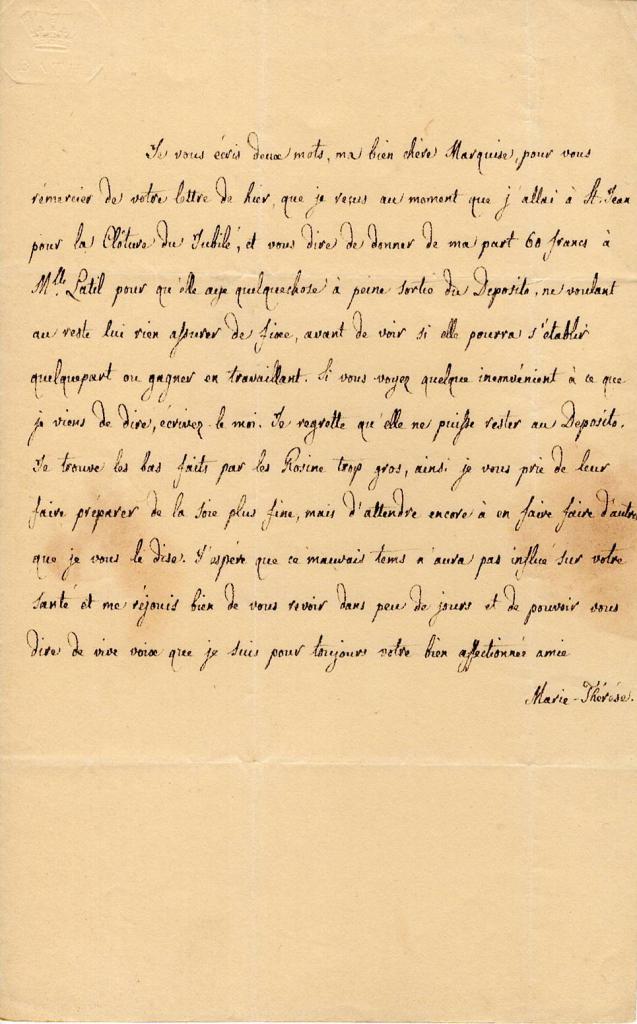 Je vous écris deux mots, ma bien chère Marquise, pour vous
rémercier de votre lettre de hier, que je reçus au moment que j'allai à St. Jean
pour la Clôture du Jubilé, et vous dire de donner de ma part 60 francs à
Mlle. Latil pour qu'elle aye quelquechose à peine sortie du Deposito, ne voulant
au reste lui rien assurer de fixe, avant de voir si elle pourra s'établir
quelquepart ou gagner en travaillant. Si vous voyez quelque inconvénient à ce que
je viens de dire, ecrivez-le moi. Je regrette qu'elle ne puisse rester au Deposito.
Je trouve les bas faits par les Rosine trop gros, ainsi je vous prie de leur
faire préparer de la soie plus fine, mais d'attendre encore à en faire faire d'autres
que je vous le dise. J'espère que ce mauvais tems n'aura pas influé sur votre
santé et me réjouis bien de vous revoir dans peu de jours et de pouvoir vous
dire de vive voix que je suis pour toujours votre bien affectionnée amie
Marie-Thérèse.